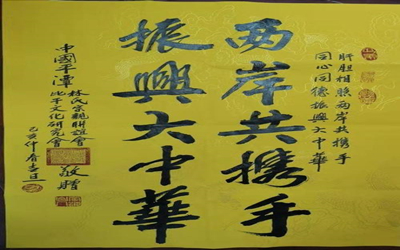 肝胆相照两岸共携手
同心同德振興大中華
两岸共携手
振興大中華
中國平潭
林氏宗親聯誼會
比干文化研究會
敬贈
己亥仲春吉旦